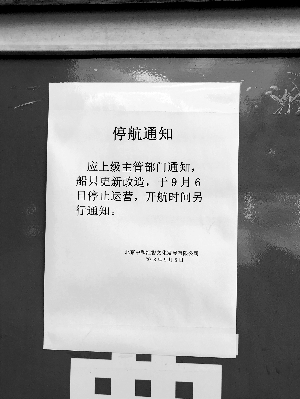 停航通知
应上级主管部门通知，
船只更新改造，于9月6
日停止运营，开航时间另
行通知。